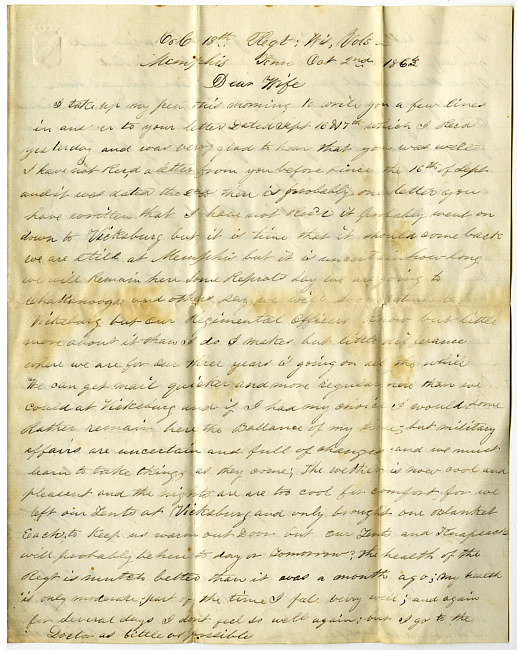 Co C 18th Regt: Wis, Vols
Memphis Tenn Oct 2nd 1863
Dear Wife
I take up my pen this morning to write you a few lines
in answer to your letter Dated Sept 16 & 17th which I Recd
yesterday and was very glad to hear that you was well
I have not Recd a letter from you before since the 16th of Sept
and it was dated the there is probably one letter you
have written that I have not Recd it probably went on
down to Vicksburg but it is time that it should come back
we are still at Memphis but it is uncertain how long
we will Remain here Some Reports say we are going to
Chattanooga and others say we will soon return to
Vicksburg but our Regimental Officers know but little
more about it than I do I makes but little difference
where we are for our three years is going on all the while
We can get mail quicker and more regular here than we
could at Vicksburg and if I had my choice I would some
Rather remain here the Ballance of my time, but military
affairs are uncertain and full of changes and we must
learn to take things as they come; The wether is now cool and
pleasant and the nights are are too cool for comfort for we
left our Tents at Vicksburg and only brought one blanket
Each, to keep us warm out Door but our Tents and Knapsacks
will probably be here to day or tomorrow; the health of the
Regt is mutch better than it was a month ago; my health
is only moderate part of the time I fel very well; and again
for several days I dont feel so well again; but I go to the
Doctor as little as possible